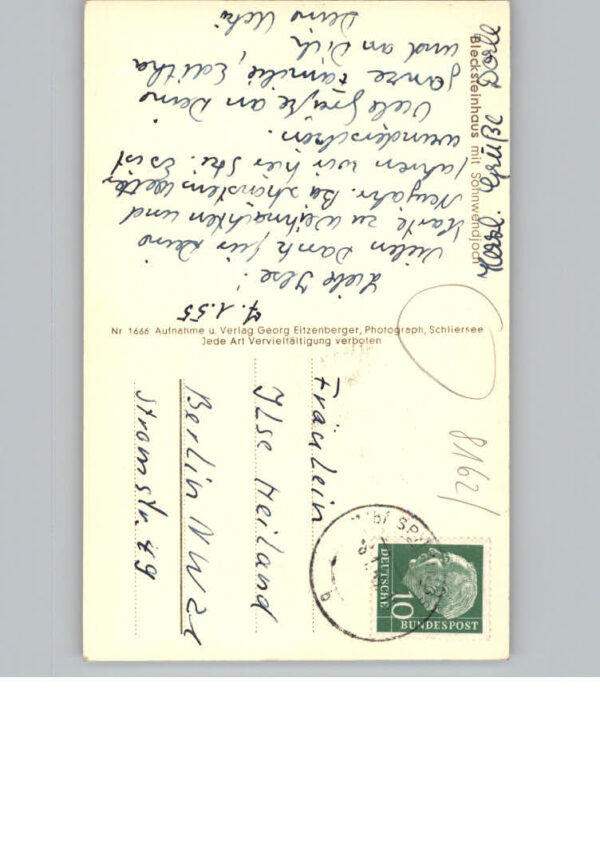 Blecksteinhaus mit Sonnwendjoch
7.1.55
Liebe Ilse!
Vielen Dank für Deine
Karte zu Weihnachten und
Neujahr. Bei schönstem Wetter
fahren wir hier Ski. Es ist
wunderschön.
Viele Grüße an Deine
ganze Familie, Editha
und an Dich
Deine
Herzl. Grüße
Nr 1666 Aufnahme u. Verlag Georg Eitzenberger, Photograph, Schliersee
Jede Art Vervielfältigung verboten
Fräulein
Ilse Heiland
Berlin NW 21
Stromstr.
8162/
DEUTSCHE
10
BUNDESPOST